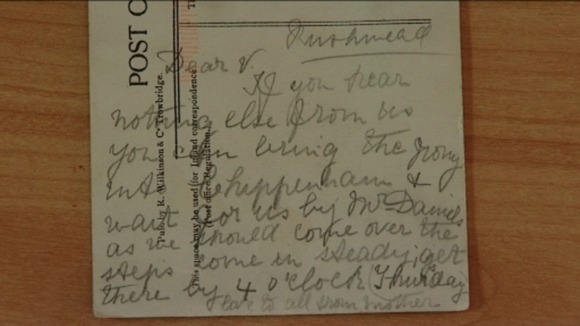 POST C
Pub. by R. Wilkinson & Co Trowbridge.
This space may be used for Inland correspondence
(Post Office Regulation.)
Rushmead
Dear V.
If you hear
nothing else from us
you can bring the Pony
into Chippenham &
wait for us by Mc Daniels
as we should come over the
steps come in steady, get
there by 4 o'clock Thursday
love to all from Mother